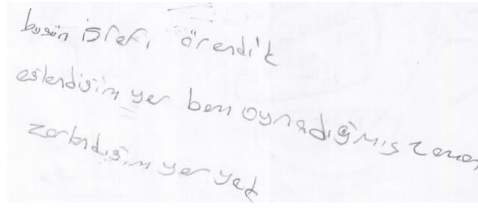 bugün isleri örendik
eslendiğim yer ben oynadığmıs zaman
zorlndiğim yer yok